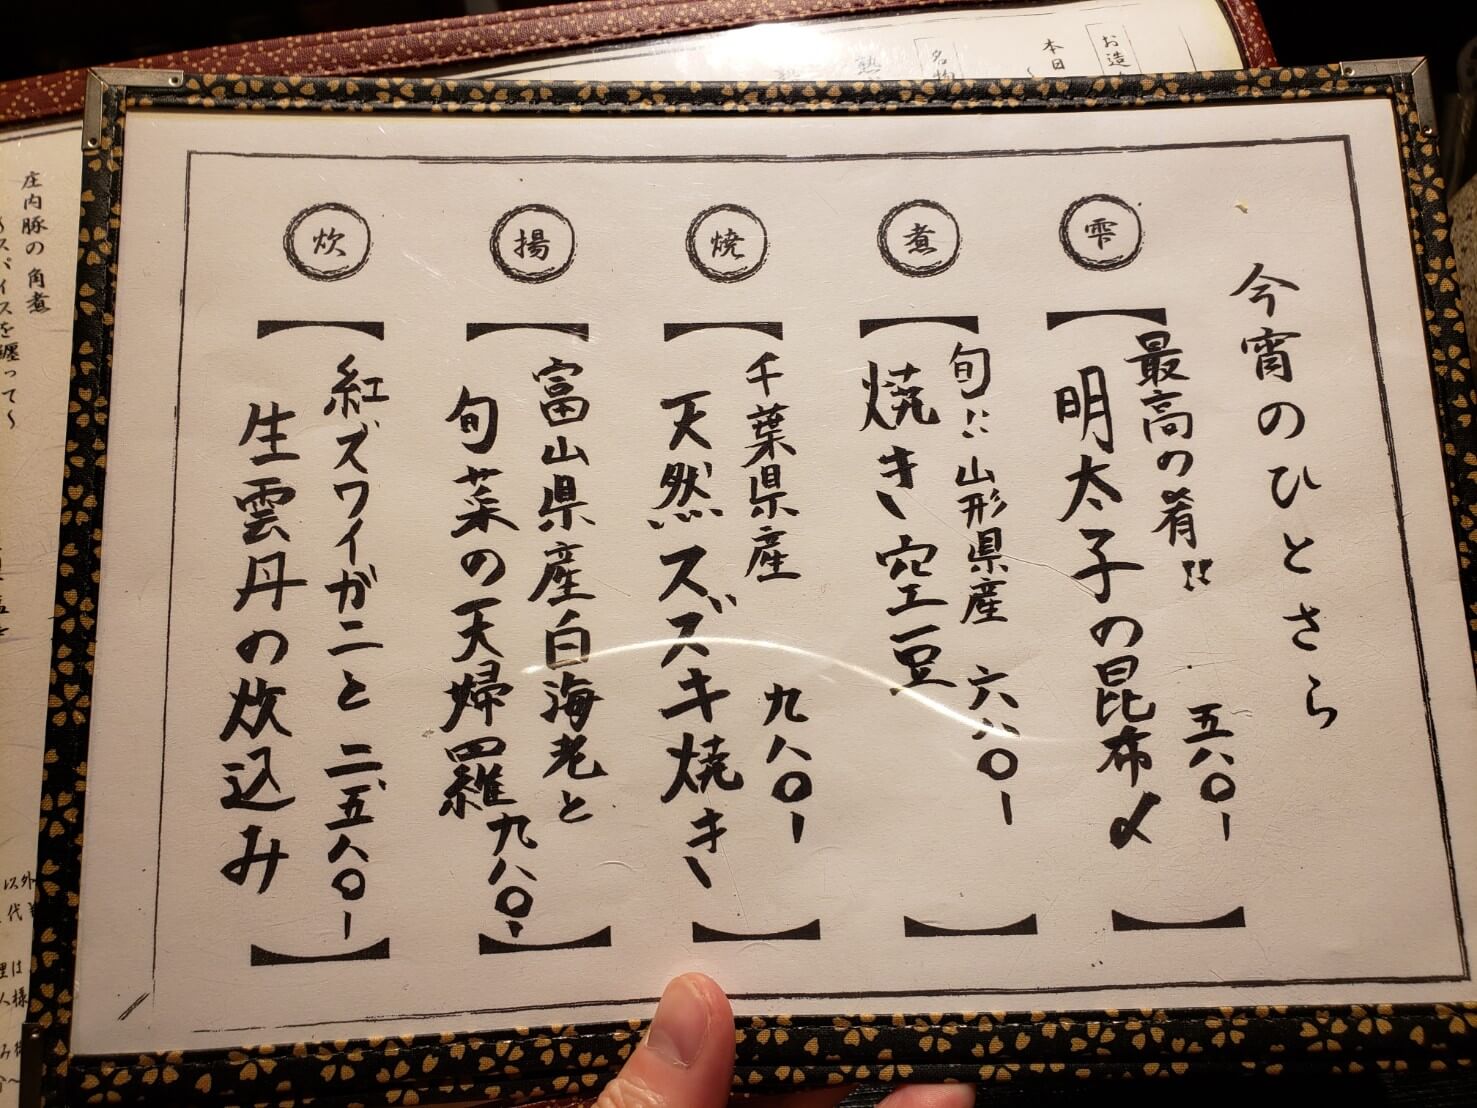 今宵のひとさら
雫
最高の肴!! 五八〇-
明太子の昆布〆
煮
旬!! 山形県産 六八〇-
焼き空豆
焼
千葉県産 九八〇-
天然スズキ焼き
揚
富山県産白海老と
旬菜の天婦羅 九八〇-
炊
紅ズワイガニと 二、五八〇-
生雲丹の炊込み
お造
本日
名物
庄内豚の角煮
スパイスを纏って〜
以外